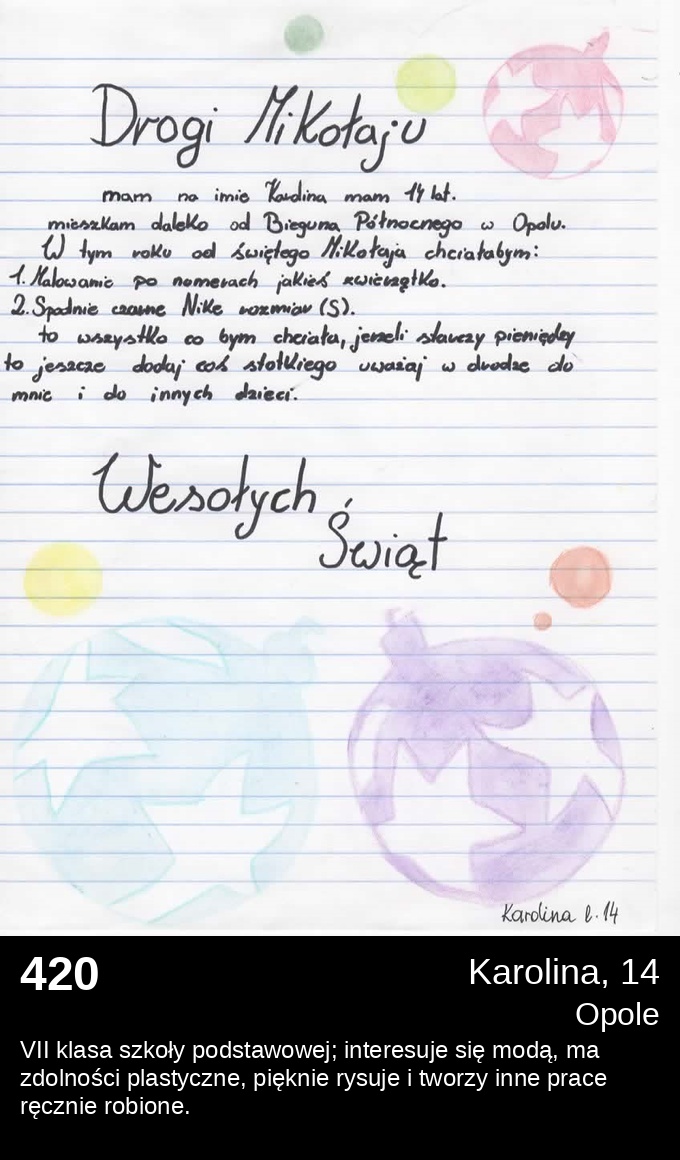 Drogi Mikołaju
mam na imie Karolina mam 14 lat.
mieszkam daleko od Bieguna Północnego w Opolu.
W tym roku od świętego Mikołaja chciałabym:
1. Malowanie po numerach jakieś zwierzątko.
2. Spodnie czarne Nike rozmiar (S).
to wszystko co bym chciała, jerzeli starczy pieniędzy
to jeszcze dodaj coś słotkiego uważaj w drodze do
mnie i do innych dzieci.
Wesołych
Świąt
Karolina l. 14
420
Karolina, 14
Opole
VII klasa szkoły podstawowej; interesuje się modą, ma
zdolności plastyczne, pięknie rysuje i tworzy inne prace
ręcznie robione.